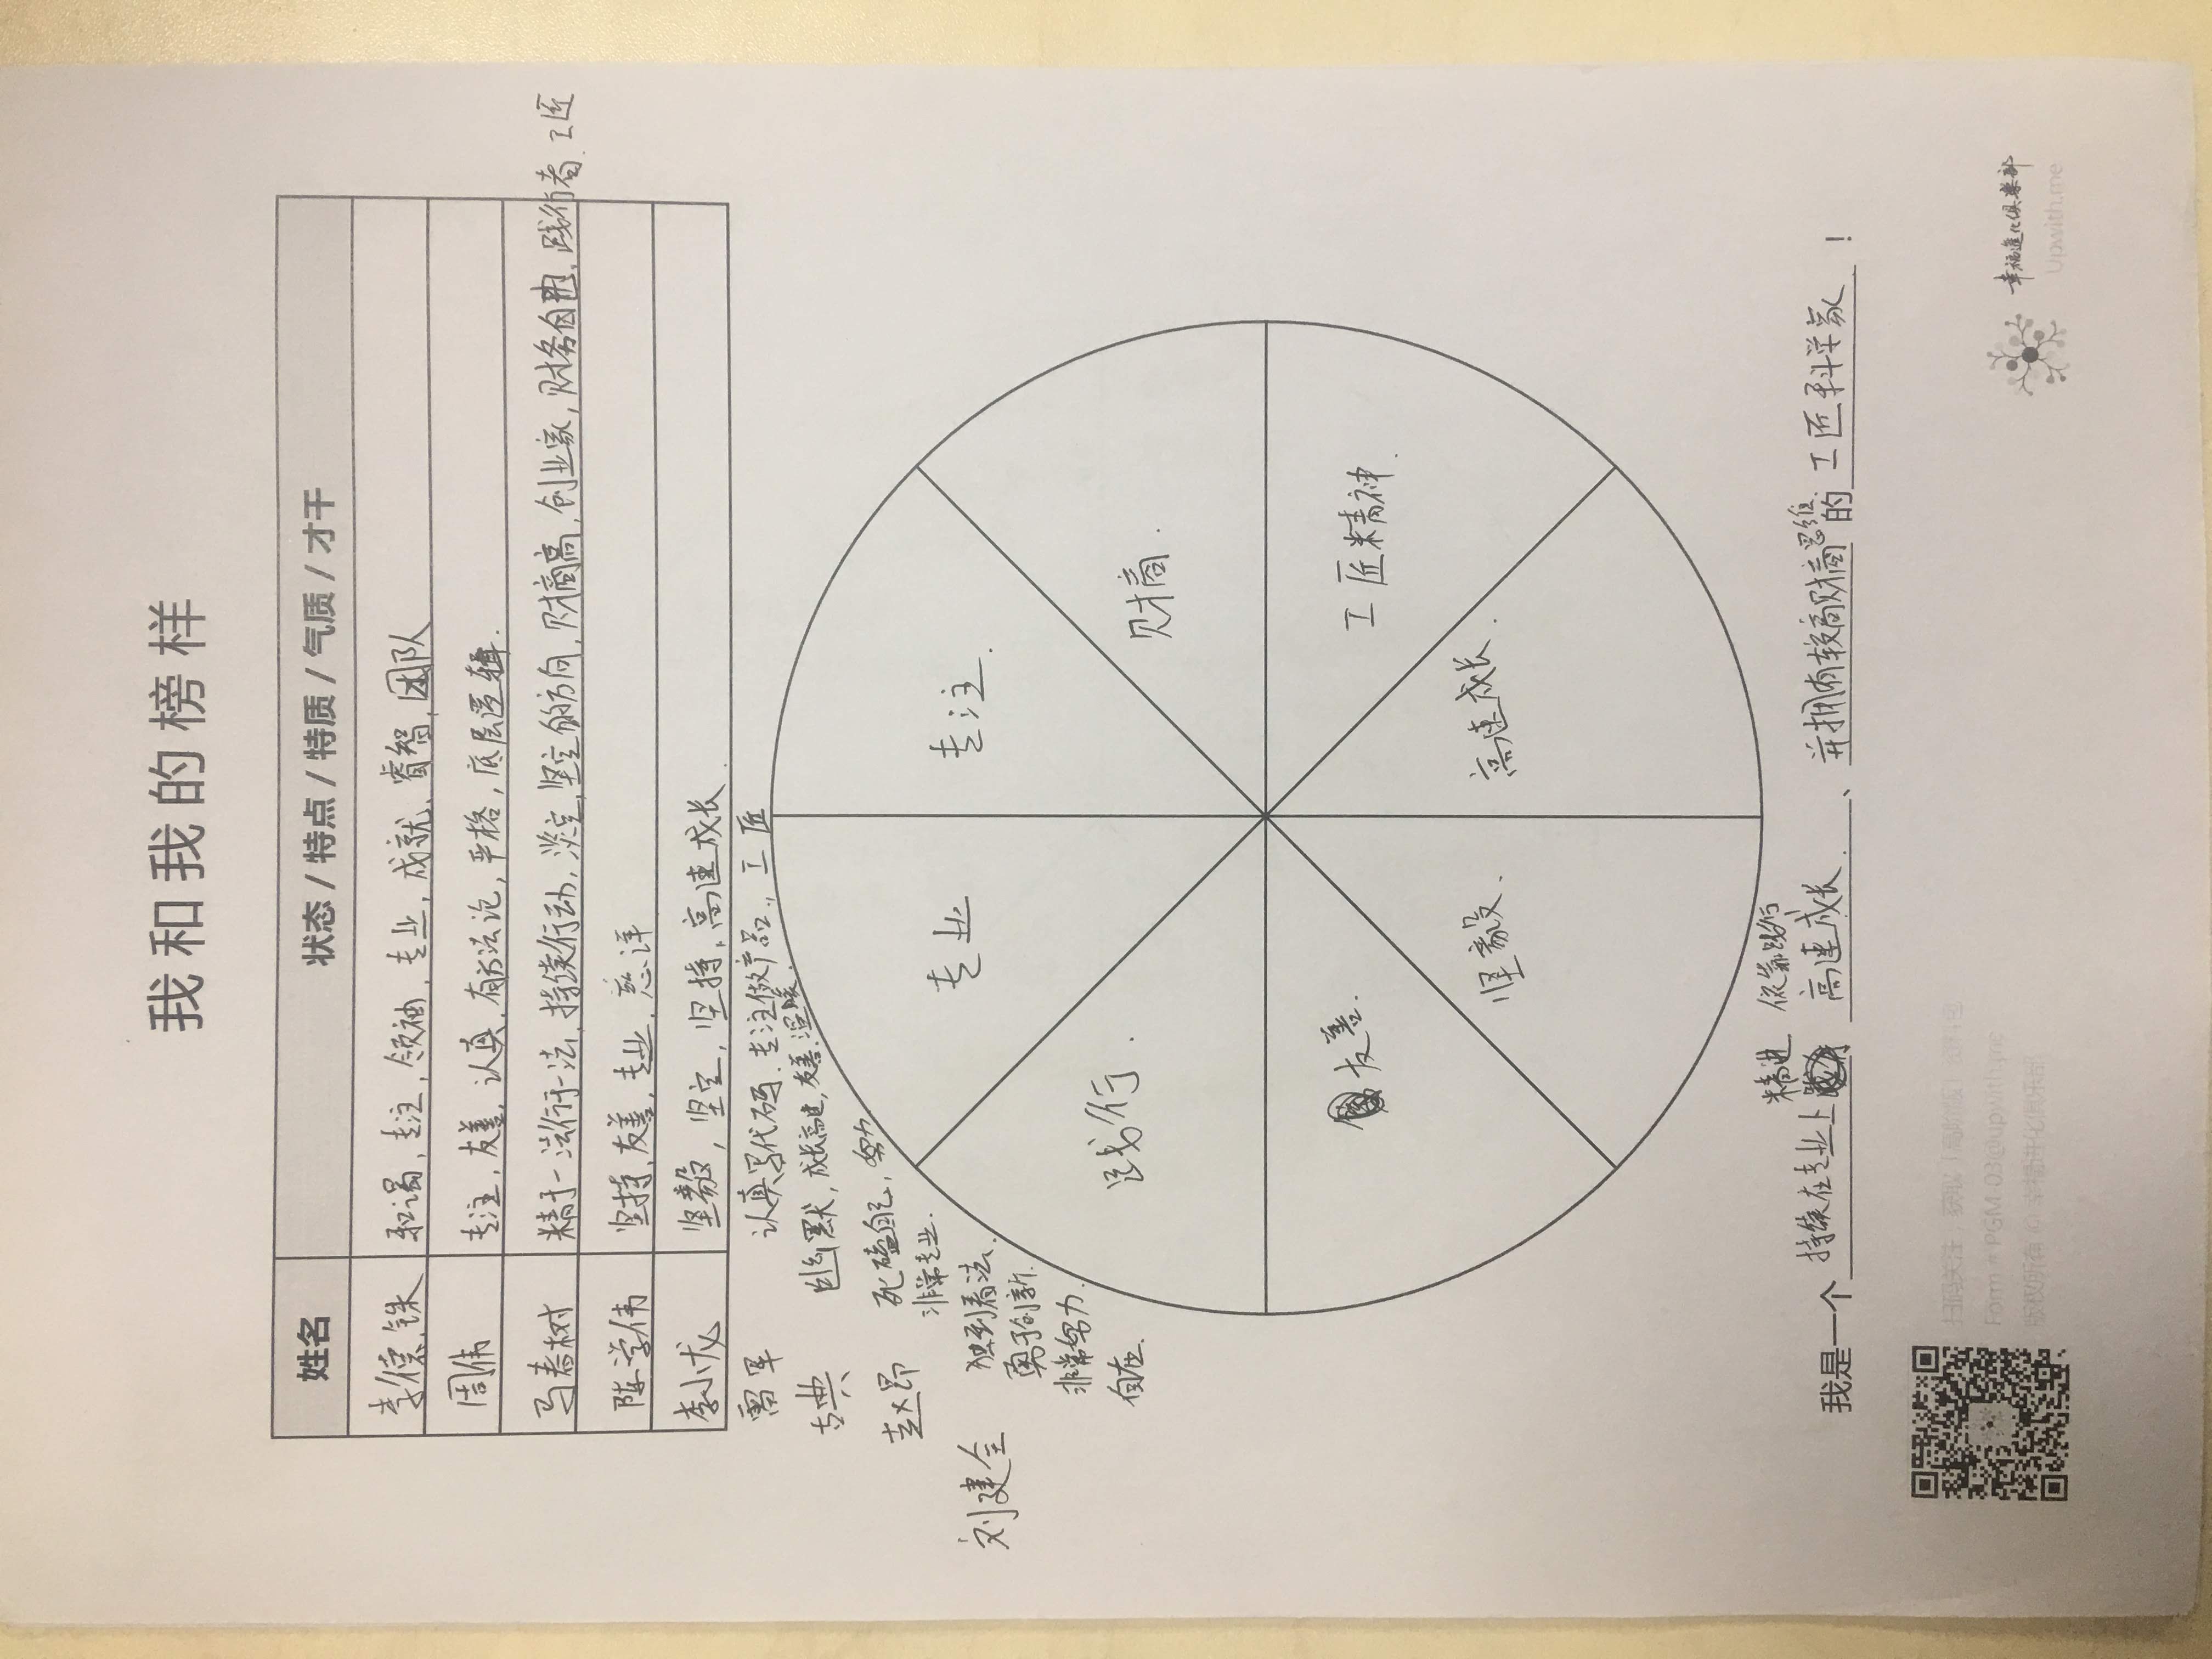 我和我的榜样
姓名 状态 / 特点 / 特质 / 气质 / 才干
李德铢 和谒, 专注, 领袖, 专业, 成就, 睿智, 团队
周伟 专注, 友善, 认真, 有方法论, 严格, 底层逻辑.
马春树 精于一法行于一法, 持续行动, 淡定, 坚定的方向, 财商高, 创业家, 财务自由, 践行者, 工匠
陈学伟 坚持, 友善, 专业, 慈详
李小龙 坚毅, 坚定, 坚持, 高速成长.
雷军 认真写代码, 专注做产品, 工匠
古典 幽默, 成长高速, 友善, 温暖.
赵昂 死磕自己, 努力
非常专业.
刘建全 独到看法,
勇于创新.
非常努力.
自在.
专业 专注.
践行. 财商.
友善. 工匠精神.
坚毅. 高速成长.
精进 依靠践行
我是一个 持续在专业上 高速成长. 、并拥有较高财商思维的 工匠科学家 !
扫码关注，获取「高阶版」资料包
Form # PGM-03@upwith.me
版权所有 © 幸福进化俱乐部
幸福進化俱樂部
Upwith.me